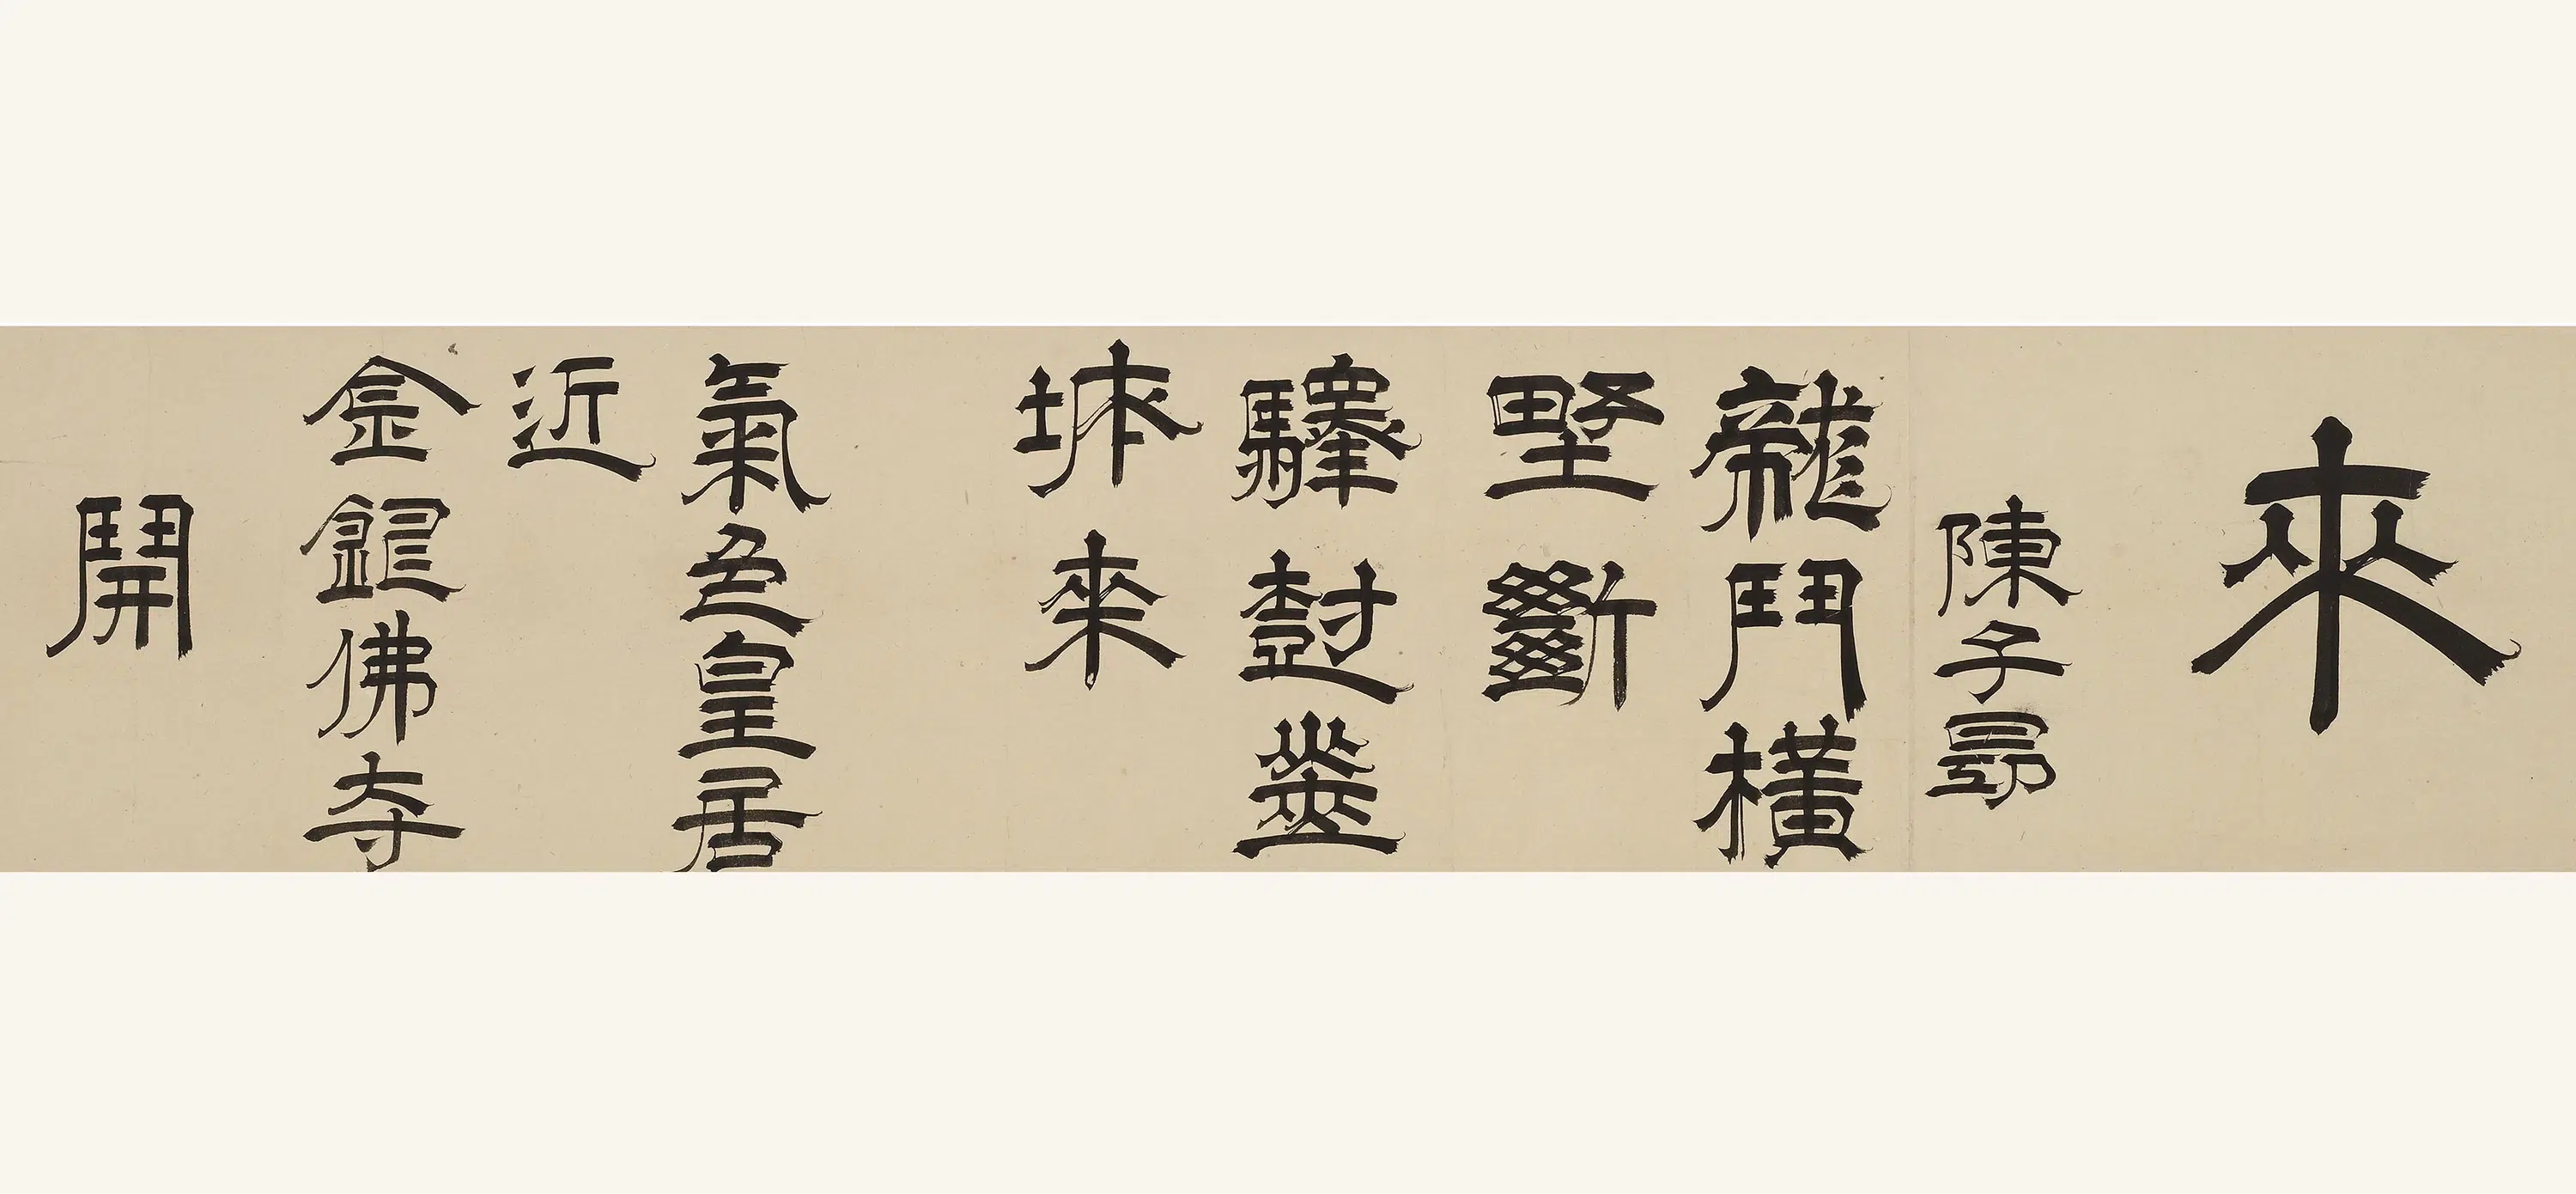 來
陳子昂
龍門橫
野斷
驛樹
城來
氣色皇居
近
金銀佛寺
開